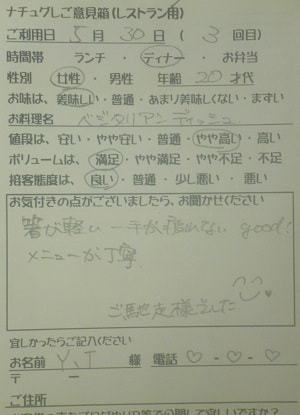 ナチュグレご意見箱(レストラン用)
ご利用日 5月 30日 ( 3 回目)
時間帯 ランチ ・ ディナー ・ お弁当
性別 女性 ・ 男性 年齢 20才代
お味は、美味しい・普通・あまり美味しくない・まずい
お料理名 ベジタリアンディッシュ
値段は 安い・やや安い・普通・やや高い・高い
ボリュームは、満足・やや満足・やや不足・不足
接客態度は、良い・普通・少し悪い・悪い
お気付きの点がございましたら、お聞かせください
箸が軽い 手が疲れない good!
メニューが丁寧
ご馳走様でした
宜しかったらご記入ください
お名前 Y.T 様 電話 ♡-♡-♡
〒 ー
ご住所